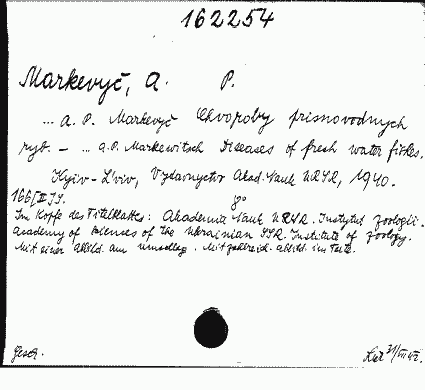 162254
Markevyč, A. P.
... A. P. Markevyč Chvoroby prisnovodnych
ryb. — ... A. P. Markewitsch Diseases of fresh water fishes.
Kyjiv - Lviv, Vydavnyctvo Akad. Nauk URSR, 1940.
166 S. 8°
Im Kopfe des Titelblattes: Akademia Nauk URSR. Instytut zoologii.
Academy of Sciences of the Ukrainian SSR. Institute of zoology.
Mit einer Abbild. am Umschlag. Mit zahlreich. Abbild. im Texte.
Gesch.
31/VII 42.